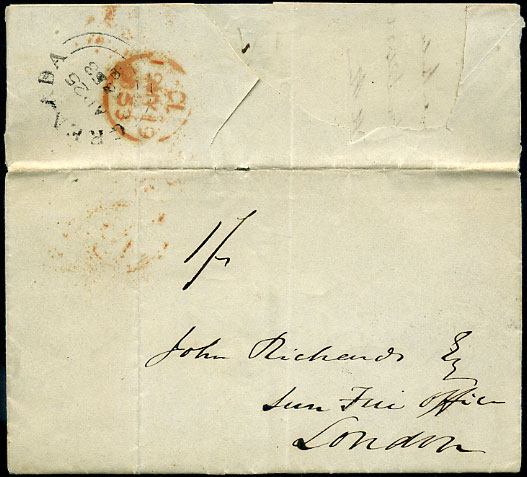 GRENADA
AU 25
1853
CL
19
1853
1/-
John Richards Esq
Sun Fire Office
London